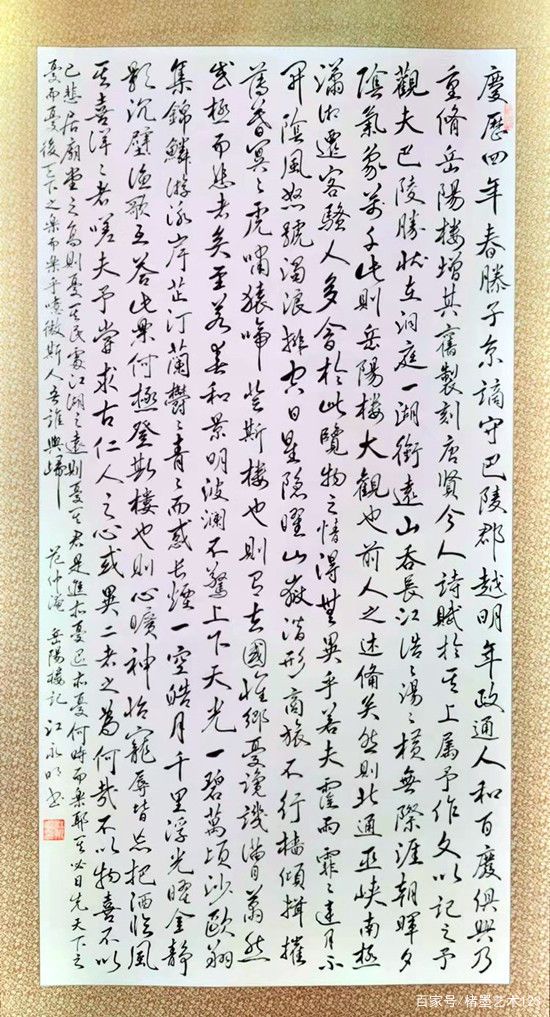 慶歷四年春滕子京謫守巴陵郡越明年政通人和百廢俱興乃
重脩岳陽樓增其舊製刻唐賢今人詩賦於其上属予作文以記之予
觀夫巴陵勝狀在洞庭一湖銜遠山吞長江浩々湯々橫無際涯朝暉夕
陰氣象萬千此則岳陽樓大觀也前人之述備矣然則北通巫峽南極
瀟湘遷客騷人多會於此覽物之情得無異乎若夫霪雨霏々連月不
開陰風怒號濁浪排空日星隱曜山嶽潛形商旅不行檣傾楫摧
薄暮冥々虎嘯猿啼登斯樓也則有去國懷鄉憂讒譏滿目蕭然
感極而悲者矣至若春和景明波瀾不驚上下天光一碧萬頃沙鷗翔
集錦鱗游泳岸芷汀蘭鬱々青々而或長煙一空皓月千里浮光曜金靜
影沉壁漁歌互答此樂何極登斯樓也則心曠神怡寵辱皆忘把酒臨風
其喜洋々者嗟夫予嘗求古仁人之心或異二者之為何哉不以物喜不以
已悲居廟堂之高則憂其民處江湖之遠則憂其君是進亦憂退亦憂何時而樂耶其必曰先天下之
憂而憂後天下之樂而樂乎噫微斯人吾誰與歸
范仲淹 岳陽樓記 江永明书
百家号/楮墨艺术128